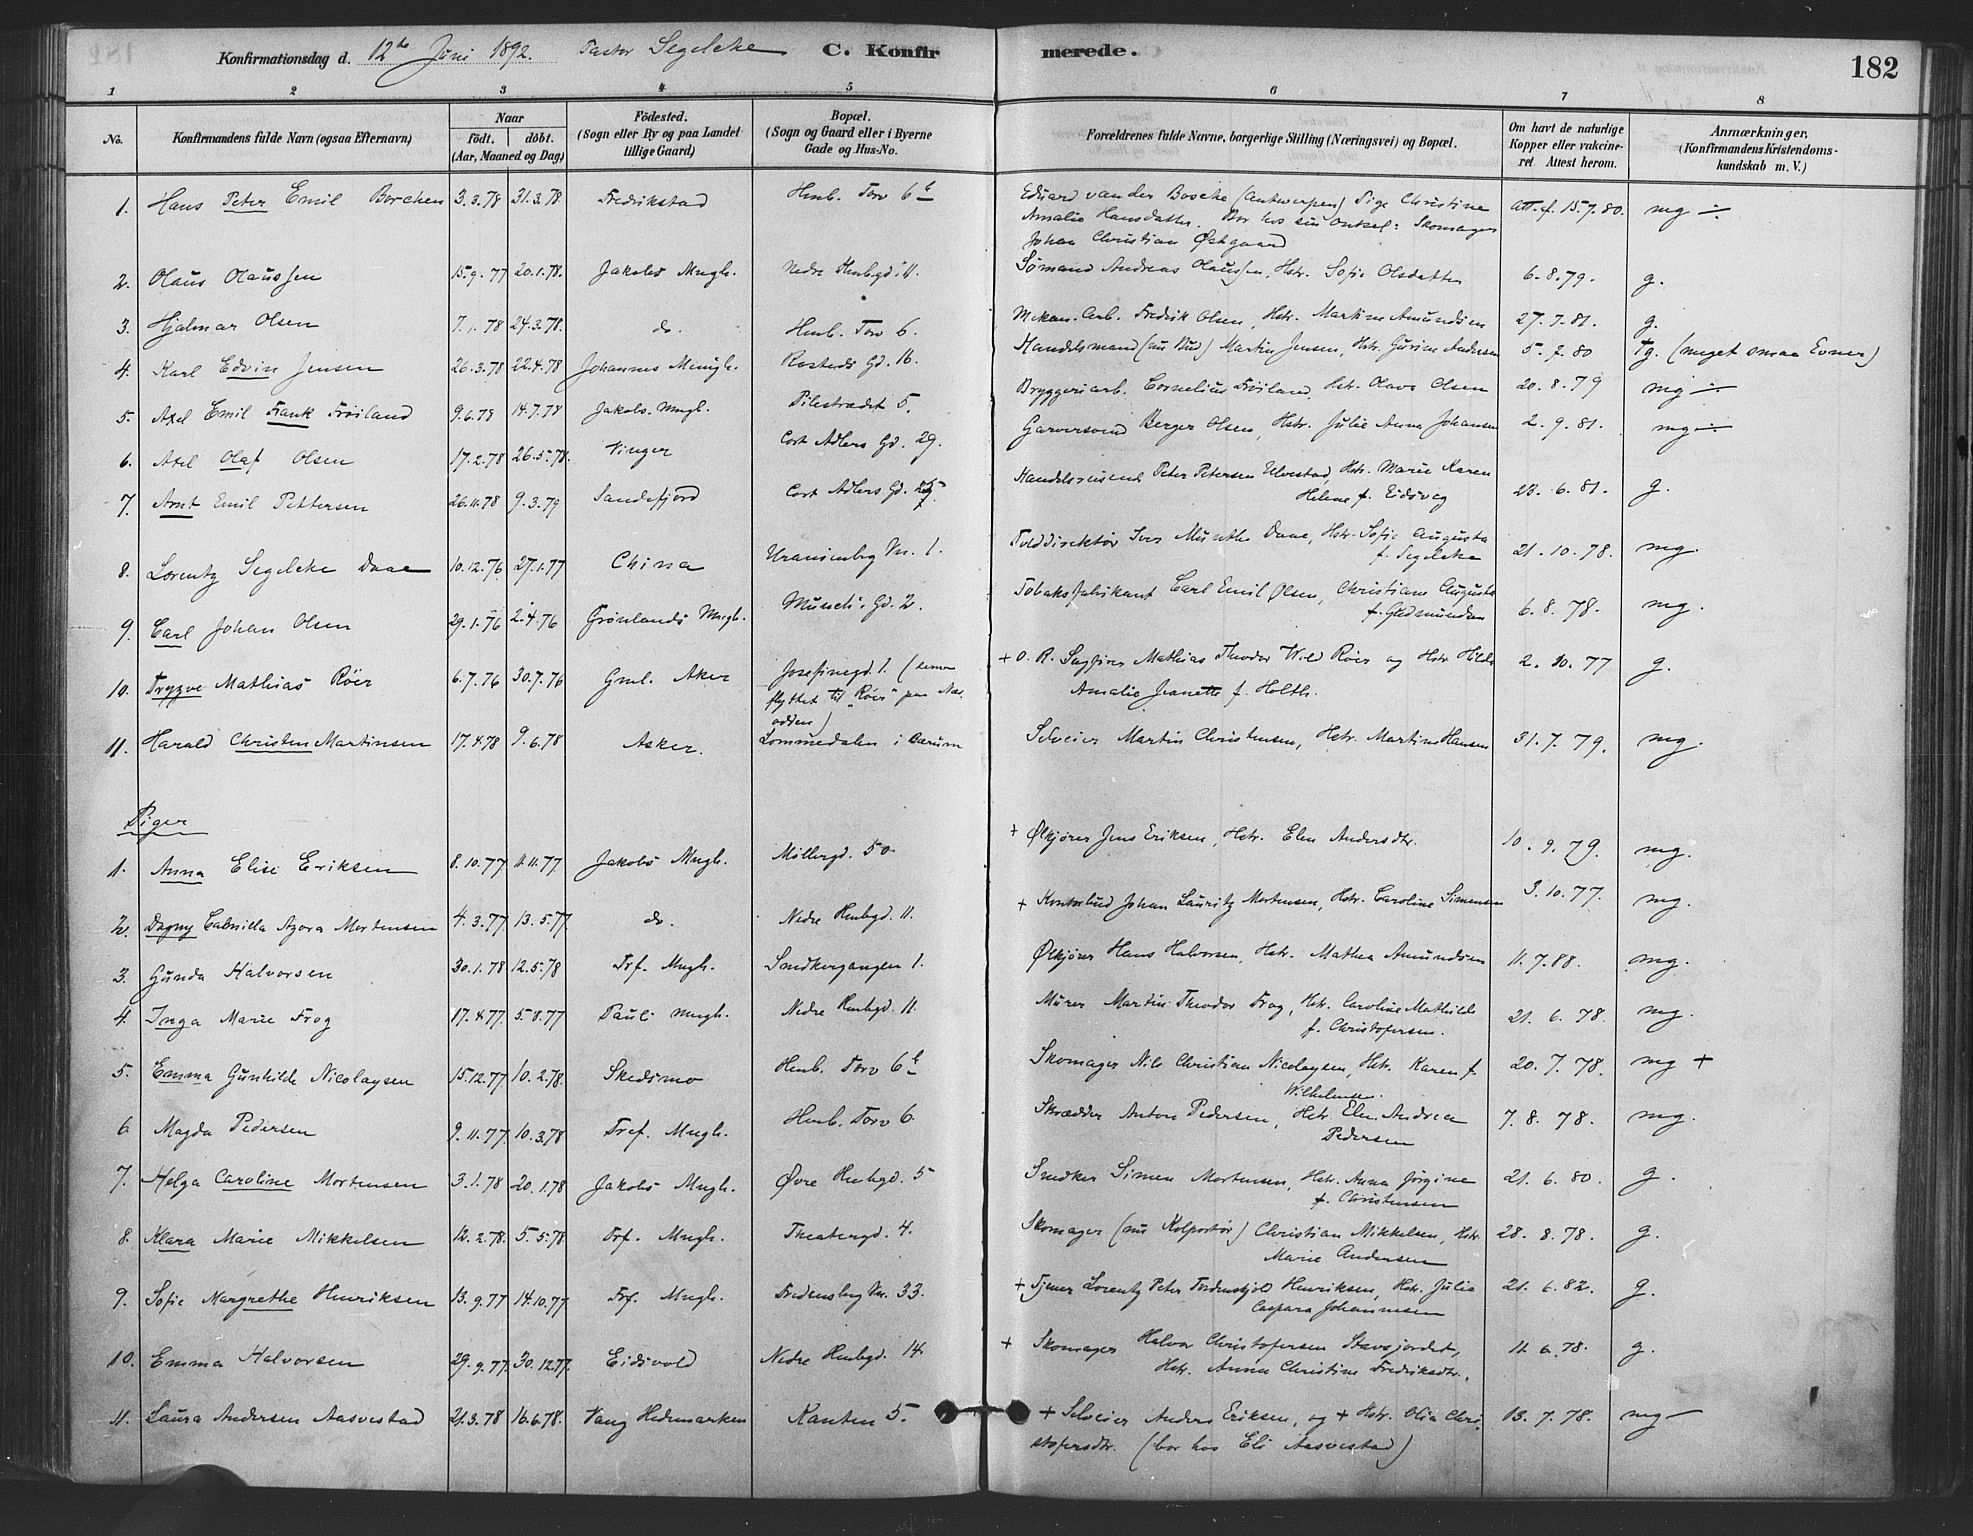 Konfirmationsdag d. 12te Juni 1892. Pastor Segelcke C. Konfirmerede. 182
1 2 3 4 5 6 7 8
No. Konfirmandens fulde Navn (ogsaa Efternavn) Naar födt. döbt. (Aar, Maaned og Dag) Födested. (Sogn eller By og paa Landet tillige Gaard) Bopæl. (Sogn og Gaard eller i Byerne Gade og Hus-No. Forældrenes fulde Navne, borgerlige Stilling (Næringsvei) og Bopæl. Om havt de naturlige Kopper eller vakcineret. Attest herom. Anmærkninger. (Konfirmandens Kristendomskundskab m. V.)
1. Hans Peter Emil Borchen 3.3.78 31.3.78 Fredrikstad Henb. Torv 6b Eduard van der Bosche (Antwerpen) Pige Christine att. f. 15.7.80. mg ÷
Amalie Hansdatter. Bor hos sin Onkel: Skomager
Johan Christian Østgaard
2. Olaus Olaussen 15.9.77 20.1.78. Jakobs Mngh. Nedre Henbgd. 11. Sømand Andreas Olaussen, Hstr. Sofie Olsdatter 6.8.79. g.
3. Hjalmar Olsen 7.1.78 24.3.78. do. Henb. Torv 6. Mekan. Arb. Fredrik Olsen, Hstr. Martine Amundsen 27.7.81. g.
4. Karl Edvin Jensen 26.3.78 22.4.78 Johannes Menigh. Rosteds Gd. 16. Handelsmand (nu Bud) Martin Jensen, Hstr. Gurine Andersen 5.7.80 Tg. (meget smaa Evner)
5. Axel Emil Frank Frøiland 9.6.78 14.7.78 Jakobs Mngh. Pilestrædet 5. Bryggeriarb. Cornelius Frøiland, Hstr. Olava Olsen 20.8.79 mg ÷
6. Axel Olaf Olsen 17.2.78 26.5.78. Vinger Cort Adlers Gd. 29. Garversvend Berger Olsen, Hstr. Julie Anna Johansen 2.9.81. mg ÷
7. Arnt Emil Pettersen 26.11.78 9.3.79 Sandefjord Cort Adlers Gd. Handelsreisende Peter Petersen Ulvestad, Hstr. Marie Karen 23.6.81. g.
Helene f. Eidsvag
8. Lorentz Segelcke Daae 10.12.76 27.1.77 China Uranienbrg Vn. 1. Tolddirektør Iver Munthe Daae, Hstr. Sofie Augusta 21.10.78. mg.
f. Segelcke
9. Carl Johan Olsen 29.1.76 2.4.76 Grønlands Mngh. Museets Gd. 2. Tobaksfabrikant Carl Emil Olsen, Christiane Augusta 6.8.78. mg.
f. Gudmundsen
10. Trygve Mathias Röer 6.7.76 30.7.76 Gml. Aker Josefinegd. 1. (senere + O. R. Sagfører Mathias Theodor Wild Röer og Hstr. Hilda 2.10.77 g.
flyttet til "Röer" paa Næsodden) Amalie Jeanette f. Holth.
11. Harald Christen Martinsen 17.4.78 9.6.78 Asker. Lommedalen i Bærum Selveier Martin Christensen, Hstr. Martine Hansen 31.7.79. mg.
Piger
1. Anna Elise Eriksen 8.10.77 11.11.77 Jakobs Mngh. Møllergd. 50. + Ølkjører Jens Eriksen, Hstr. Elen Andersdtr. 10.9.79. mg.
2. Dagny Gabrielle Azora Mortensen 4.3.77 13.5.77 do. Nedre Henbgd. 11. + Kontorbud Johan Lauritz Mortensen, Hstr. Caroline Simensen 3.10.77. mg.
3. Gunda Halvorsen 30.1.78 12.5.78 Trf. Mngh. Snedkergangen 1. Ølkjører Hans Halvorsen, Hstr. Mathea Amundsen 11.7.88. mg.
4. Inga Marie Frog 17.4.77. 5.8.77 Pauli Mngh. Nedre Henbgd. 11. Murer Martin Theodor Frog, Hstr. Caroline Mathilde 21.6.78. mg.
f. Christofersen.
5. Emma Gunhilde Nicolaysen 15.12.77 10.2.78. Skedsmo Henb. Torv 6b Skomager Nils Christian Nicolaysen, Hstr. Karen f. 20.7.78. mg +
Wilhelmsen.
6 Magda Pedersen 9.11.77 10.3.78 Tref. Mngh. Henb. Torv 6. Skrædder Anton Pedersen, Hstr. Elen Andrea 7.8.78. mg.
Pedersen
7. Helga Caroline Mortensen 3.1.78 20.1.78 Jakobs Mngh. Øvre Henbgd. 5 Snedker Simen Mortensen, Hstr. Anna Jørgine 21.6.80. g.
f. Christensen
8. Klara Marie Mikkelsen 12.2.78. 5.5.78 Trf. Mngh. Theatergd. 4. Skomager (nu Kolportör) Christian Mikkelsen, Hstr. 28.8.78. g.
Marie Andersen
9. Sofie Margrethe Henriksen 13.9.77 14.10.77 Trf. Mngh. Fredensborg Vn. 33. + Tjener Lorentz Peter Tordenskjold Henriksen, Hstr. Julia 21.6.82. g.
Caspara Johannesen
10. Emma Halvorsen 29.9.77. 30.12.77. Eidsvold Nedre Henbgd. 14. + Skomager Halvor Christofersen Stavsjordet, 11.6.78. g.
Hstr. Anna Christine Fredriksdtr.
11. Laura Andersen Aasvestad 21.3.78 16.6.78. Vang Hedemarken Kanten 5. + Selveier Anders Eriksen, og + Hstr. Olia Chri- 13.7.78. mg —
stofersdtr. (bor hos Eli Aasvestad)